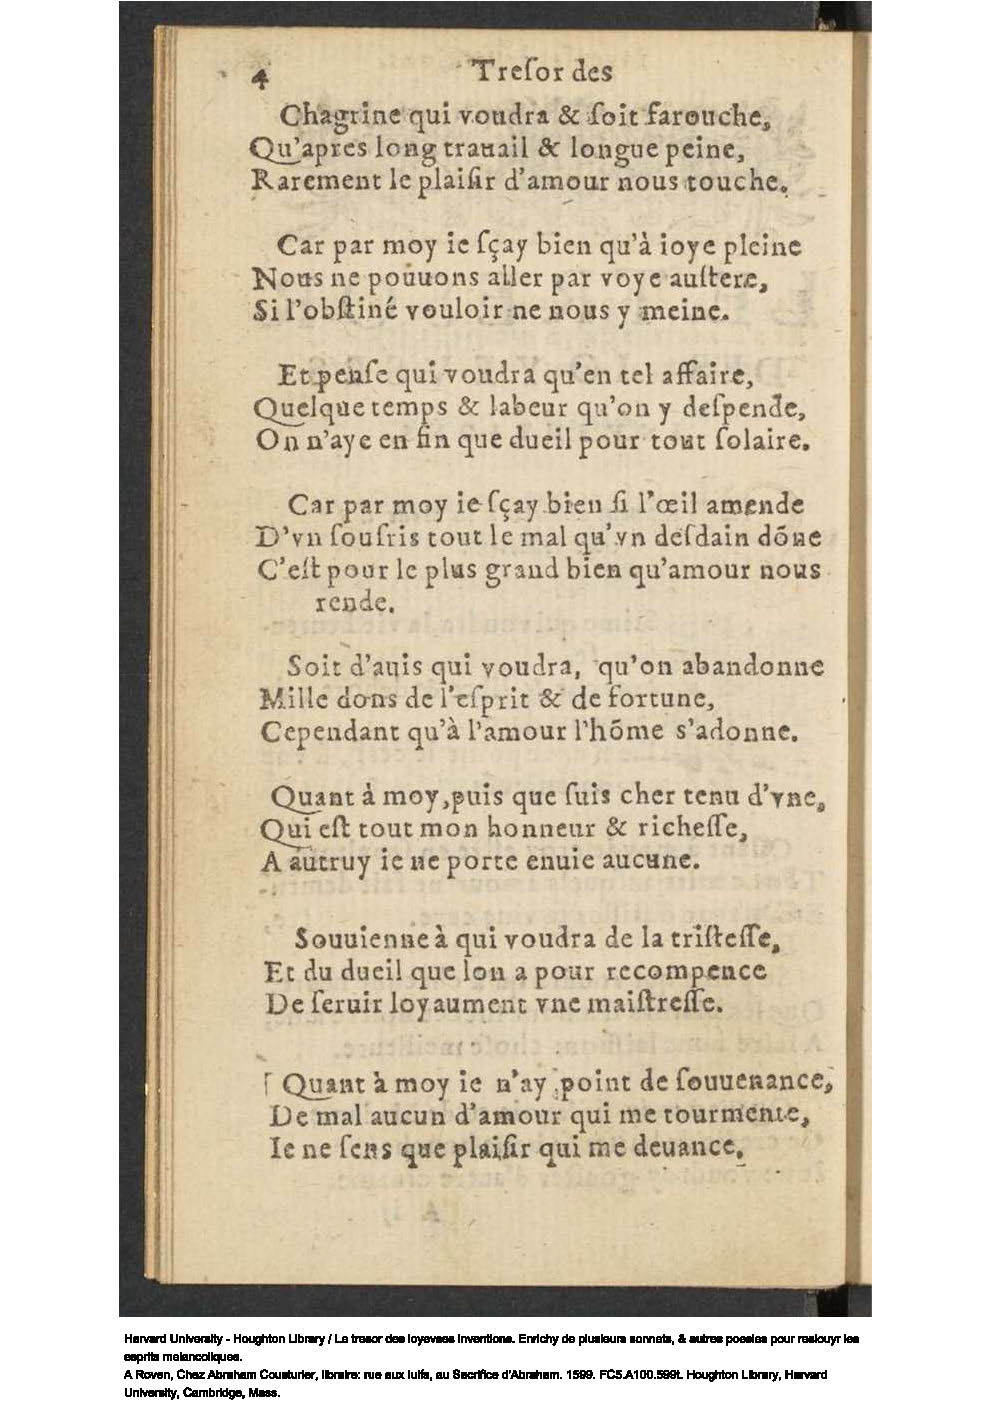 4 Treſor des
Chagrine qui voudra & ſoit farouche,
Qu'apres long trauail & longue peine,
Rarement le plaiſir d'amour nous touche.
Car par moy ie ſçay bien qu'à ioye pleine
Nous ne pouuons aller par voye auſtere,
Si l'obſtiné vouloir ne nous y meine.
Et penſe qui voudra qu'en tel affaire,
Quelque temps & labeur qu'on y deſpende,
On n'aye en fin que dueil pour tout ſolaire.
Car par moy ie ſçay bien ſi l'œil amende
D'vn ſouſris tout le mal qu'vn deſdain dõne
C'eſt pour le plus grand bien qu'amour nous
rende.
Soit d'auis qui voudra, qu'on abandonne
Mille dons de l'eſprit & de fortune,
Cependant qu'à l'amour l'hõme s'adonne.
Quant à moy, puis que ſuis cher tenu d'vne,
Qui eſt tout mon honneur & richeſſe,
A autruy ie ne porte enuie aucune.
Souuienne à qui voudra de la triſteſſe,
Et du dueil que lon a pour recompence
De ſeruir loyaument vne maiſtreſſe.
Quant à moy ie n'ay point de ſouuenance,
De mal aucun d'amour qui me tourmente,
Ie ne ſens que plaiſir qui me deuance,
Harvard University - Houghton Library / Le tresor des ioyevses inventions. Enrichy de plusieurs sonnets, & autres poesies pour resiouyr les
esprits melancoliques.
A Roven, Chez Abraham Cousturier, libraire: rue aux Iuifs, au Sacrifice d'Abraham. 1599. FC5.A100.599t. Houghton Library, Harvard
University, Cambridge, Mass.